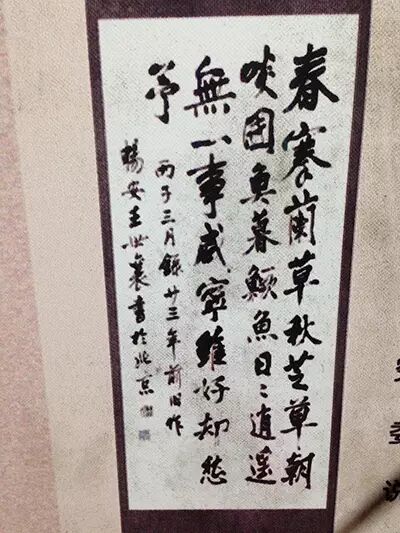 春搴蘭草秋芝草朝
啖團魚暮鱖魚日〻逍遥
無一事咸寧雖好却愁
予
丙子三月錄廿三年前旧作
暢安王世襄書於北京